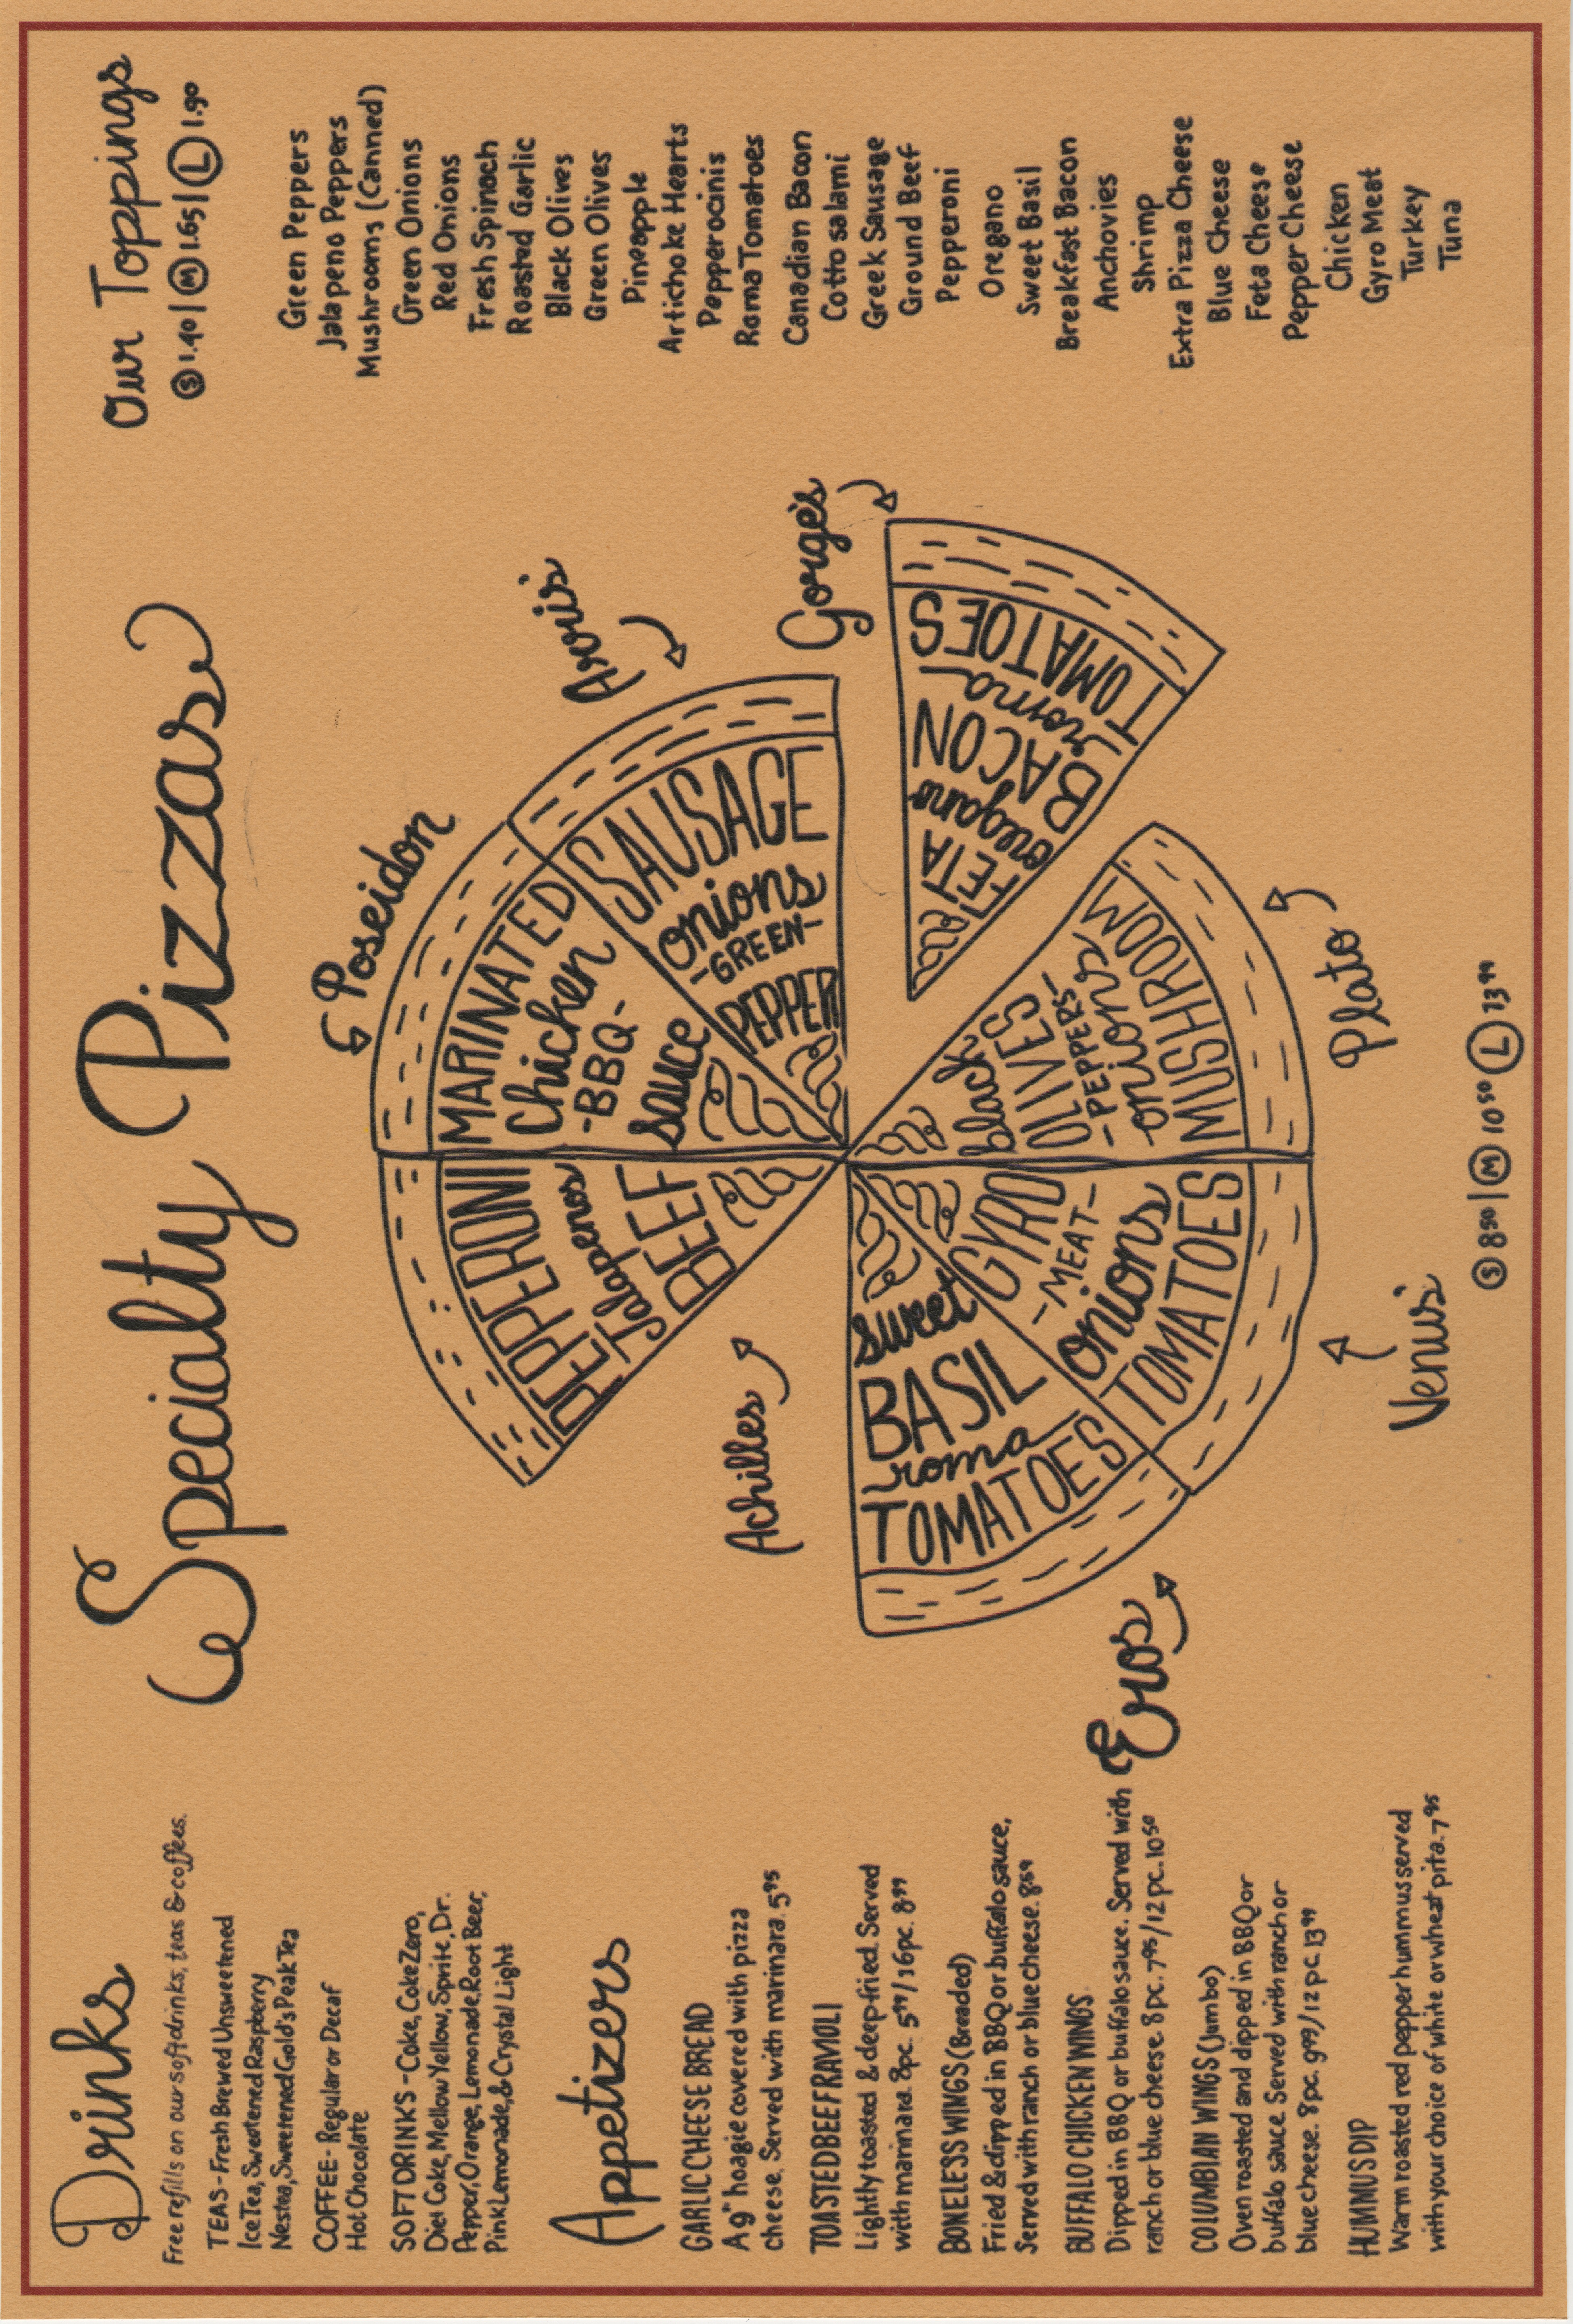 Drinks
Free refills on our soft drinks, teas & coffees.
TEAS - Fresh Brewed Unsweetened
Ice Tea, Sweetened Raspberry
Nestea, Sweetened Gold's Peak Tea
COFFEE - Regular or Decaf
Hot Chocolate
SOFT DRINKS - Coke, Coke Zero,
Diet Coke, Mellow Yellow, Sprite, Dr.
Pepper, Orange, Lemonade, Root Beer,
Pink Lemonade, & Crystal Light
Appetizers
GARLIC CHEESE BREAD
A 9" hoagie covered with pizza
cheese. Served with marinara. 5.95
TOASTED BEEF RAVIOLI
Lightly toasted & deep fried. Served
with marinara. 8pc. 5.99/16pc. 8.99
BONELESS WINGS (Breaded)
Fried & dipped in BBQ or buffalo sauce,
Served with ranch or blue cheese. 8.59
BUFFALO CHICKEN WINGS
Dipped in BBQ or buffalo sauce. Served with
ranch or blue cheese. 8 pc. 7.95/12 pc. 10.50
COLUMBIAN WINGS (Jumbo)
Oven roasted and dipped in BBQ or
buffalo sauce. Served with ranch or
blue cheese. 8 pc. 9.99/12 pc. 13.99
HUMMUS DIP
Warm roasted red pepper hummus served
with your choice of white or wheat pita. 7.95
Specialty Pizzas
Poseidon
MARINATED
Chicken
-BBQ-
sauce
Axris
SAUSAGE
onions
-GREEN-
PEPPER
Gorge's
TOMATOES
roma
BACON
oregano
FETA
Plato
black
OLIVES
-PEPPERS-
onions
MUSHROOM
Venus
GYRO
-MEAT-
onions
TOMATOES
Eros
sweet
BASIL
roma
TOMATOES
Achilles
PEPPERONI
Jalapenos
BEEF
S 8.50 | M 10.50 L 13.99
Our Toppings
S 1.40 | M 1.65 | L 1.90
Green Peppers
Jalapeno Peppers
Mushrooms (Canned)
Green Onions
Red Onions
Fresh Spinach
Roasted Garlic
Black Olives
Green Olives
Pineapple
Artichoke Hearts
Pepperocinis
Roma Tomatoes
Canadian Bacon
Cotto salami
Greek Sausage
Ground Beef
Pepperoni
Oregano
Sweet Basil
Breakfast Bacon
Anchovies
Shrimp
Extra Pizza Cheese
Blue Cheese
Feta Cheese
Pepper Cheese
Chicken
Gyro Meat
Turkey
Tuna